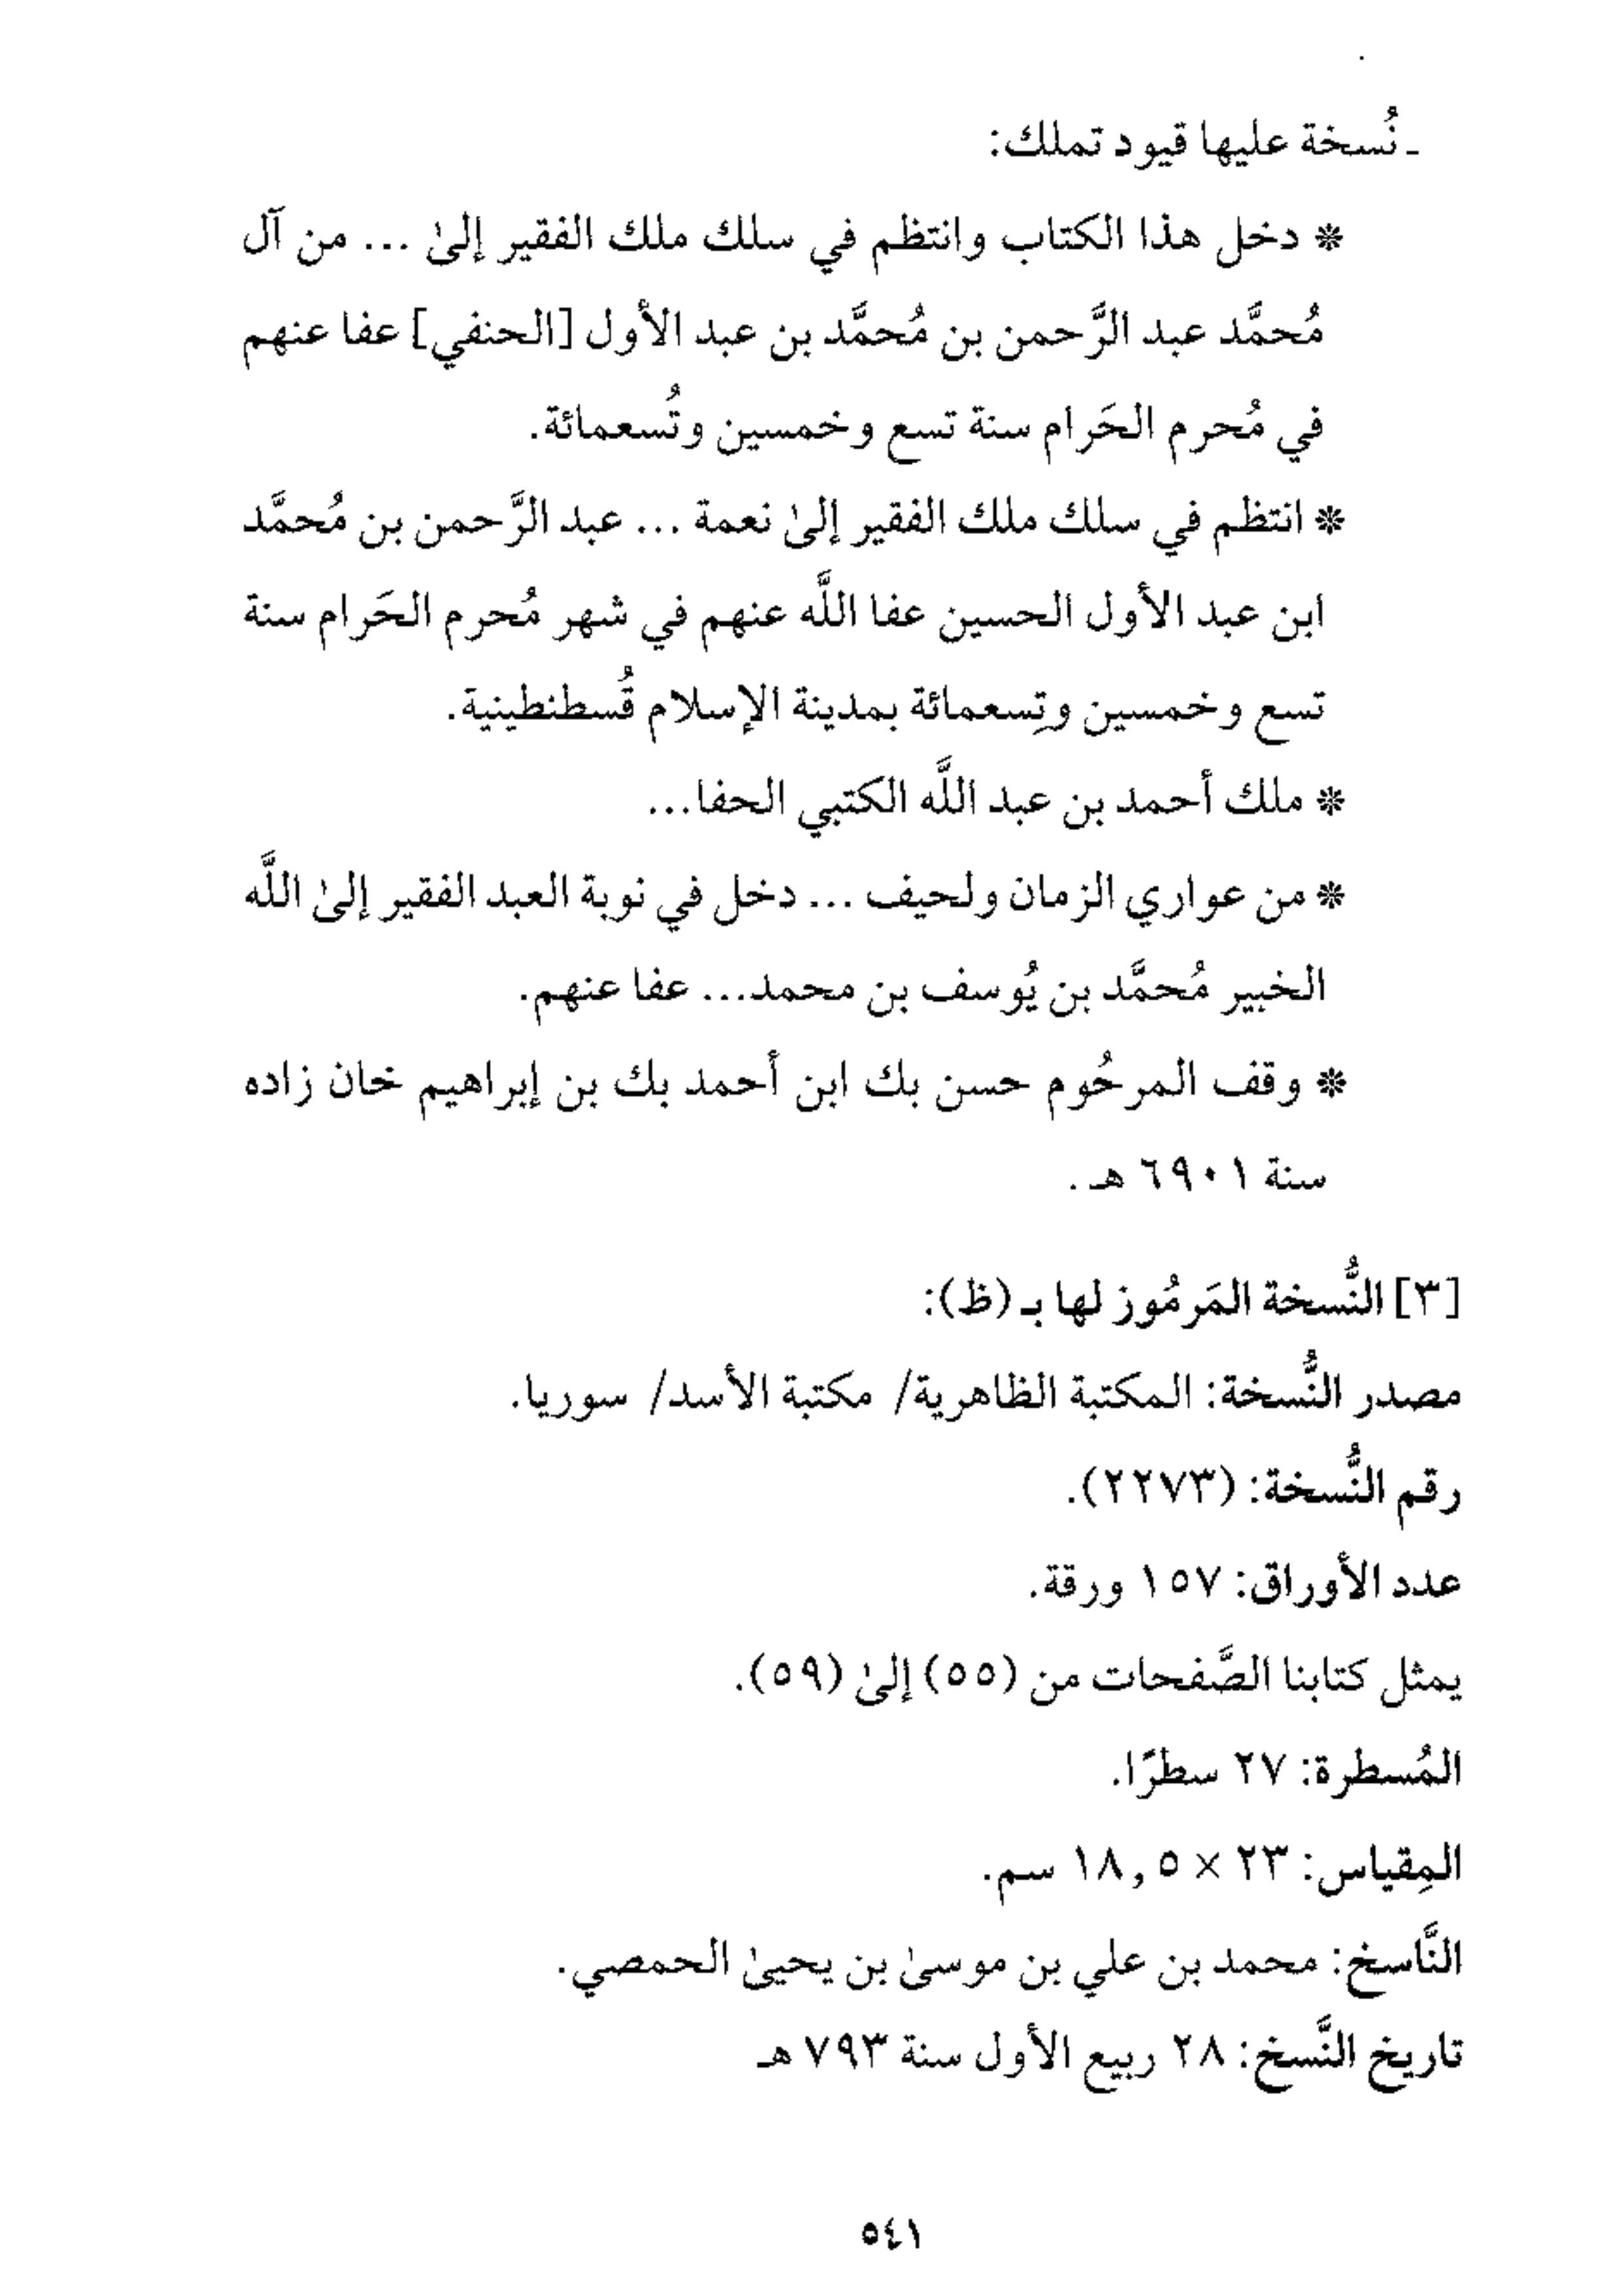 ـ نُسخة عليها قيود تملك:
❊ دخل هذا الكتاب وانتظم في سلك ملك الفقير إلىٰ ... من آل
مُحمَّد عبد الرَّحمن بن مُحمَّد بن عبد الأول [الحنفي] عفا عنهم
في مُحرم الحَرام سنة تسع وخمسين وتُسعمائة.
❊ انتظم في سلك ملك الفقير إلىٰ نعمة ... عبد الرَّحمن بن مُحمَّد
ابن عبد الأول الحسين عفا اللَّه عنهم في شهر مُحرم الحَرام سنة
تسع وخمسين وتِسعمائة بمدينة الإسلام قُسطنطينية.
❊ ملك أحمد بن عبد اللَّه الكتبي الحفا...
❊ من عواري الزمان ولحيف ... دخل في نوبة العبد الفقير إلىٰ اللَّه
الخبير مُحمَّد بن يُوسف بن محمد... عفا عنهم.
❊ وقف المرحُوم حسن بك ابن أحمد بك بن إبراهيم خان زاده
سنة ٦٩٠١ هـ .
[٣] النُّسخة المَرمُوز لها بـ (ظ):
مصدر النُّسخة: المكتبة الظاهرية/ مكتبة الأسد/ سوريا.
رقم النُّسخة: (٢٢٧٣).
عدد الأوراق: ١٥٧ ورقة.
يمثل كتابنا الصَّفحات من (٥٥) إلىٰ (٥٩).
المُسطرة: ٢٧ سطرًا.
المِقياس: ٢٣ × ١٨,٥ سم.
النَّاسخ: محمد بن علي بن موسىٰ بن يحيىٰ الحمصي.
تاريخ النَّسخ: ٢٨ ربيع الأول سنة ٧٩٣ هـ
٥٤١